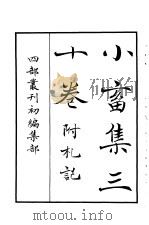 小畜集三
十卷 附札記
四部叢刊初編集部
mtoou.info